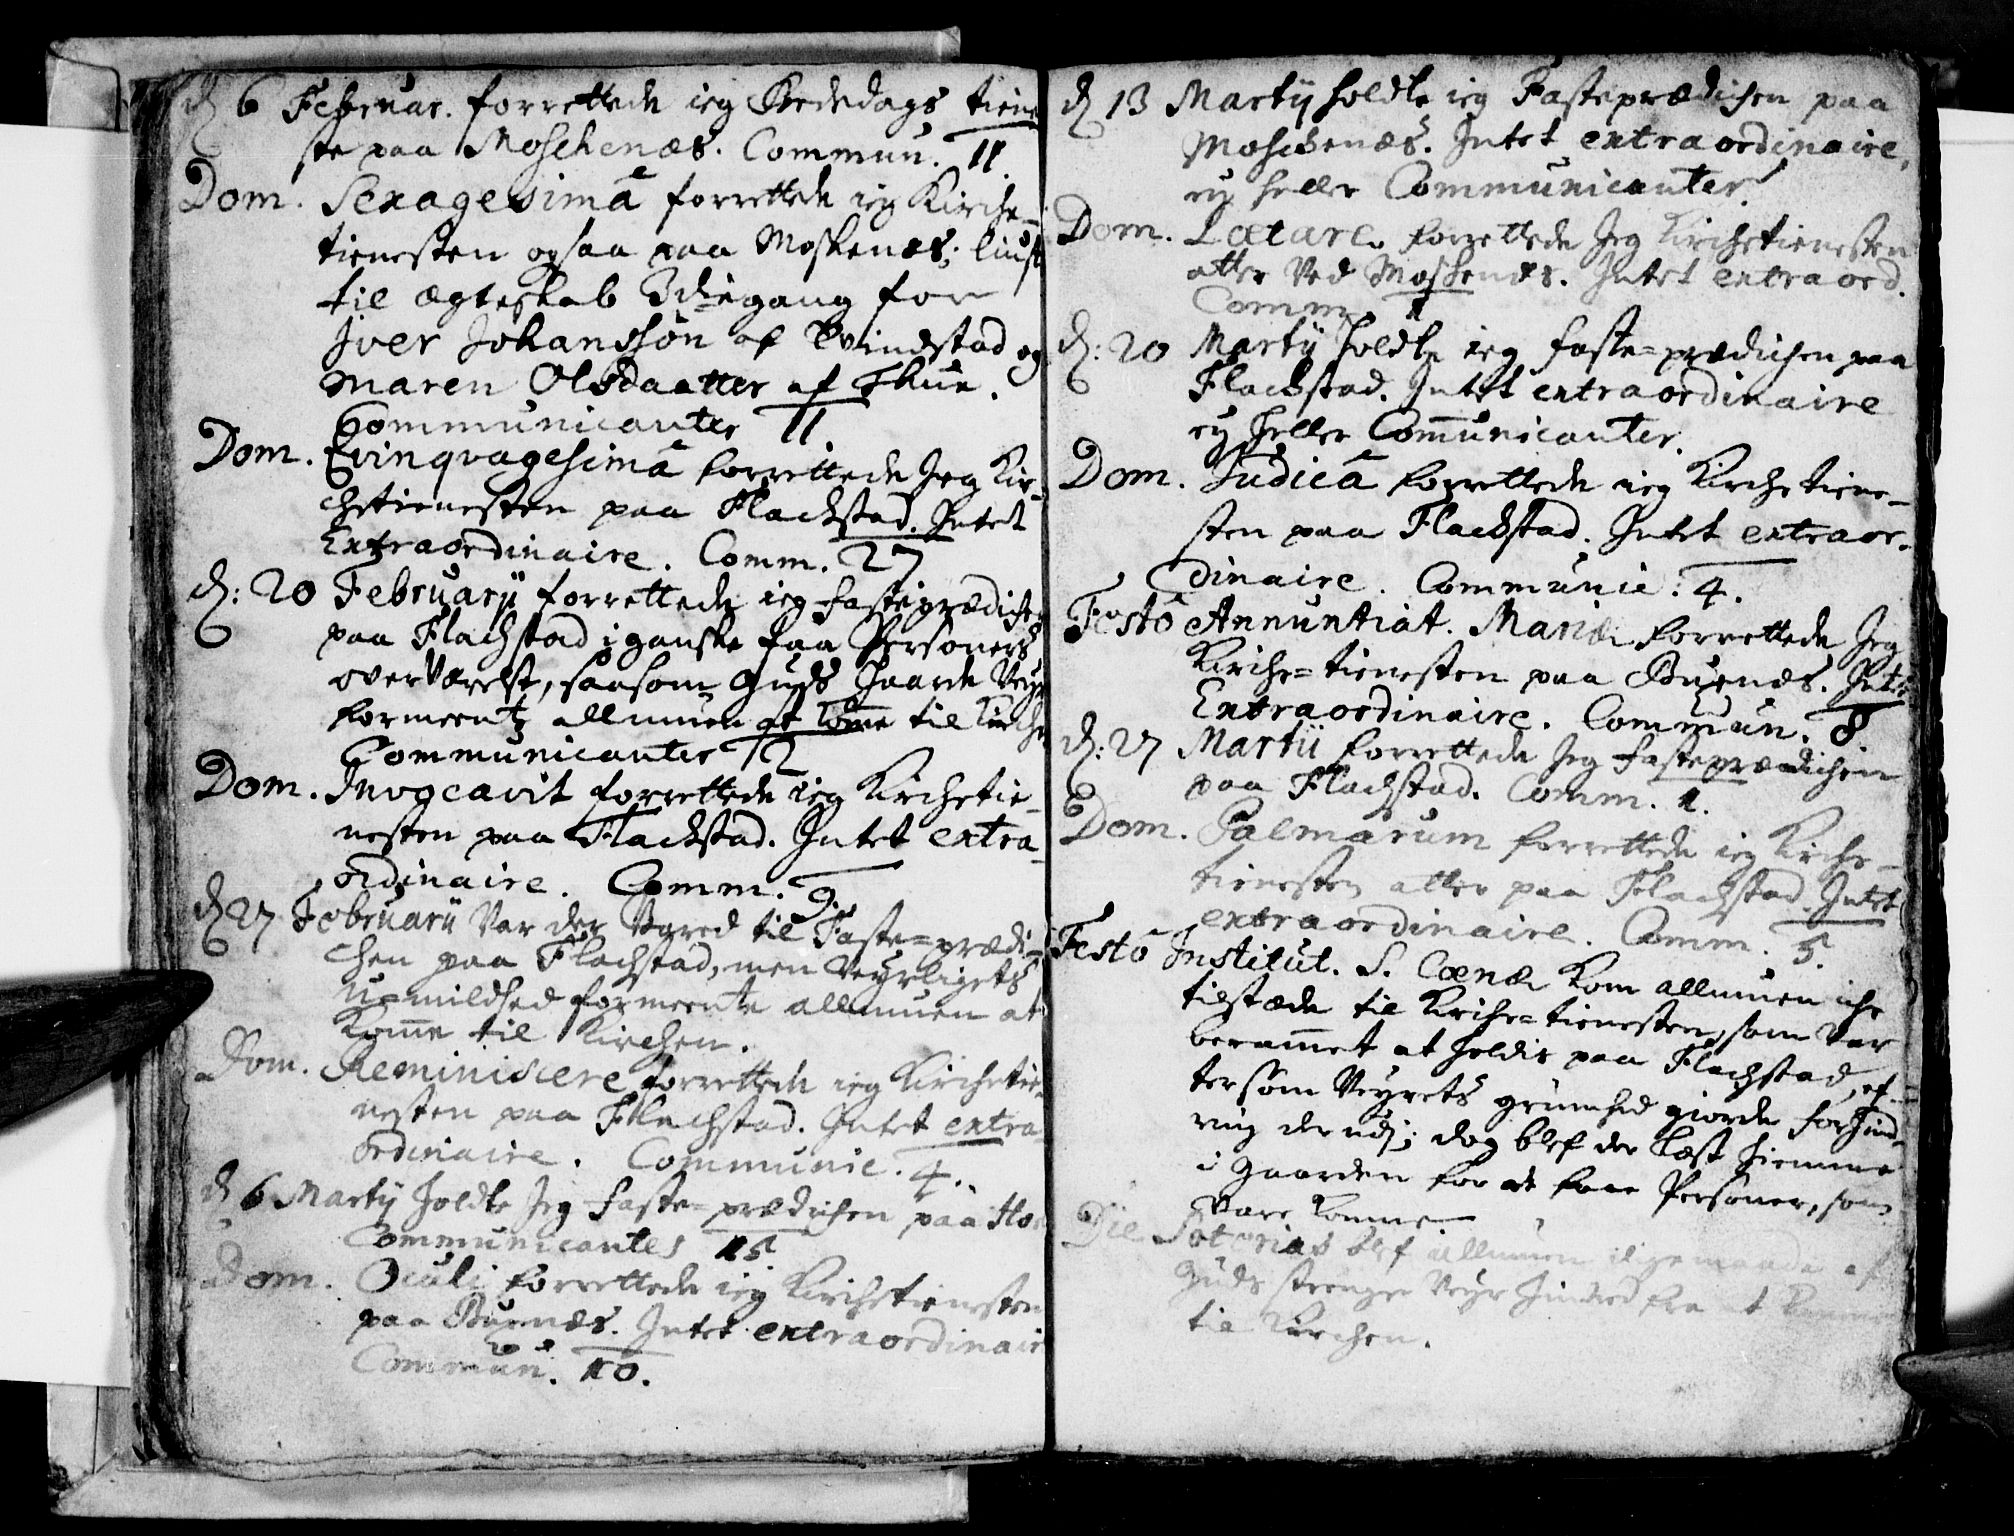 d 6 Februar. forrettede ieg Bededags tiene
ste paa Moschenæs. Commun. 11.
Dom. Sexagesima forrettede ieg Kirche-
tienesten ogsaa paa Moskenæs; liust
til ægteskab 3die gang for
Iver Johanssøn af Qvindstad og
Maren Olsdaatter af Thue.
Communicanter 11
Dom. Qvinqvagesima forrettede Jeg Kir-
chetienesten paa Flackstad. Intet
Extraordinaire. Comm. 27
d: 20 Februarij forrettede ieg fasteprædichen
paa Flachstad i ganske faa Personers
overværelse, saasom Guds haarde Veyr
formeente allmuen at kome til Kirche
Communicanter 12
Dom. Invocavit forrettede ieg Kirchetie-
nesten paa Flackstad. Intet extra-
ordinaire. Comm. 9.
d 27 Februarii Var der Vared til Faste=prædi-
chen paa Flachstad, men Veyrligets
U=mildhed formeente allmuen at
Komme til Kirchen.
Dom. Reminiscere forrettede ieg Kirchetie-
nesten paa Flachstad. Intet extra-
ordinaire. Communic. 4.
d 6 Martij holdte Jeg Faste-prædichen paa
Communicantes 15
Dom. Oculi forrettede ieg Kirchetienesten
paa Buxnæs. Intet extraordinair
Commun. 10.
d 13 Martij holdte ieg Fasteprædichen paa
Moschenæs. Intet extraordinaire,
ey heller Communicanter.
Dom. Lætare forrettede Jeg Kirchetienesten
atter Ved Moschenæs. Intet extraord.
Comm. 1
d: 20 Martij holdte ieg faste=prædichen paa
Flackstad. Intet extraordinaire
ey heller Communicanter.
Dom. Judica forrettede ieg Kirchetiene-
sten paa Flackstad. Intet extraor-
dinaire. Communic: 4.
Festo Annuntiat. Mariæ forrettede Jeg
Kirche=tienesten paa Buxnæs. Intet
Extraordinaire. Commun. 8
d: 27 Martii forrettede Jeg fasteprædichen
paa Flachstad. Comm. 1.
Dom. Palmarum forrettede ieg Kirche-
tienesten atter paa Flachstad. Intet
extraordinaire. Comm. 5.
Festo Institut. S. Coenæ kom allmuen iche
tilstæde til Kirche=tienesten, som Var
berammet at holdis paa Flachstad, ef-
tersom Veyrets grumhed giorde forhind-
ring der udj; dog blef der læst hiemme
i Gaarden for de faae Personer, som
Vare komne
Die Soterias blef allmuen i lige maade af
Guds strenge Veyr hindred fra at komme
til Kirchen.